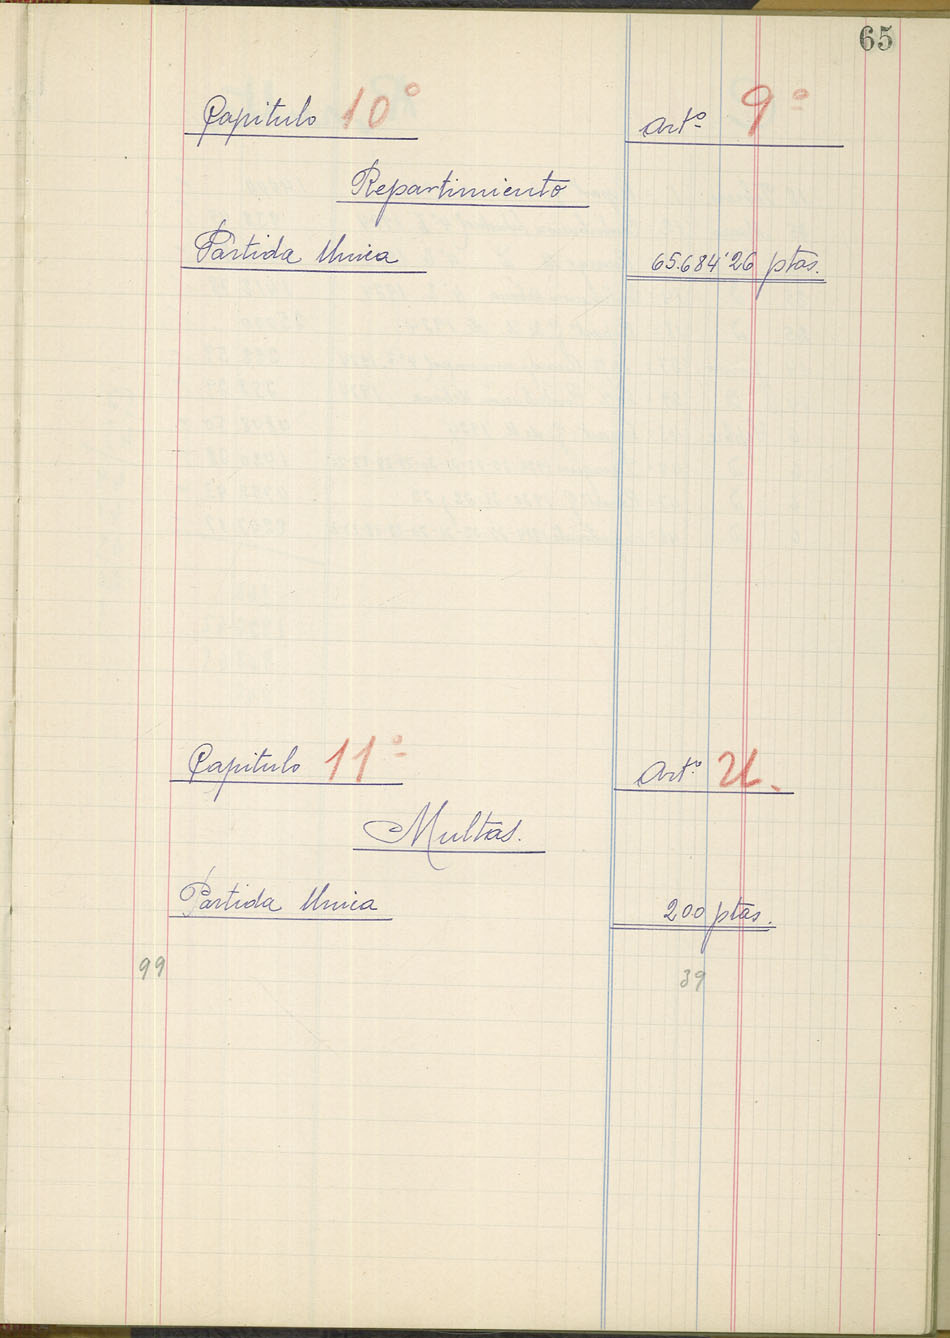 65
Capitulo 10º Artº 9º
Repartimiento
Partida Unica 65.684'26 ptas.
Capitulo 11º Artº U.
Multas.
Partida Unica 200 ptas.
99 39